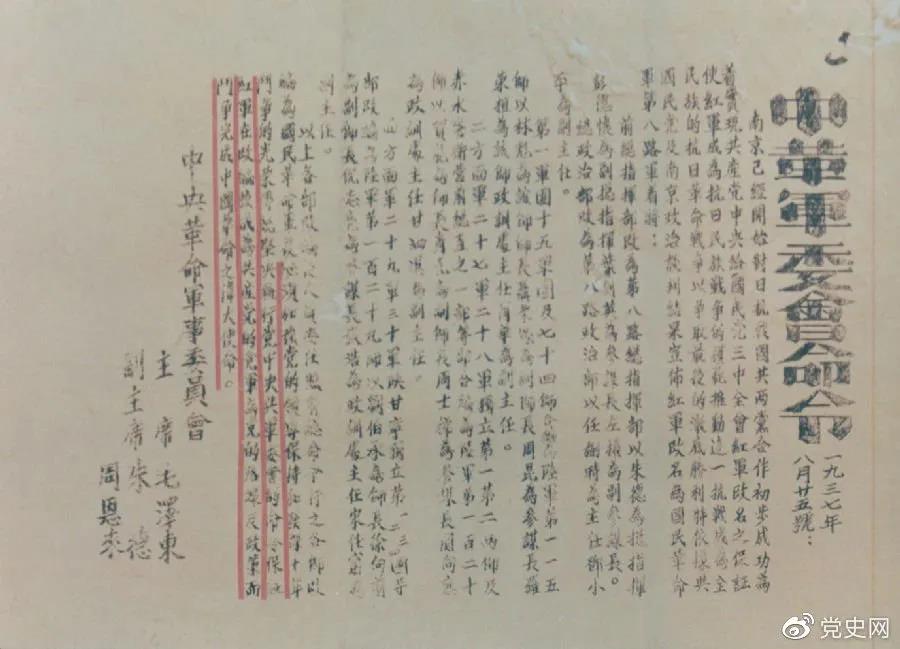 中革軍委會命令
一九三七年
八月廿五號：
南京已經開始對日抗戰國共兩黨合作初步成功為
着實現共產党中央給國民党三中全曾紅軍改名之保証
使紅軍成為抗日民族戰爭的模範推動這一抗戰成為全
民族的抗日革命戰爭以爭取最後的澈底勝利特依據與
國民党及南京政治談判結果宣佈紅軍改名為國民革命
軍第八路軍着將：
前總指揮部改為第八路總指揮部以朱德為總指揮
彭德懷為副總指揮葉劍英為參謀長左權為副參謀長。
總政治部改為第八路政治部以任弼時為主任鄧小
平為副主任。
第一軍團十五軍團及七十四師合編為陸軍第一一五
師以林彪為該師師長聶榮臻為副師長周昆為參謀長羅
榮桓為該師政訓處主任蕭華為副主任。
二方面軍二十七軍二十八軍獨立第一第二兩師及
赤水警衛營前總直之一部等部合編為陸軍第一百二十
師以賀龍為師長蕭克為副師長周士第為參謀長關向應
為政訓處主任甘泗淇為副主任。
四方面軍二十九軍三十軍陝甘寧獨立第一二三四等
部改編為陸軍第一百二十九師以劉伯承為師長徐向前
為副師長倪志亮為參謀長張浩為政訓處主任宋任窮為
副主任。
以上各部改編後人員委任照前總命令行之各部改
編為國民革命軍後必須加強党的領導保持和發揮十年
鬥爭的光榮傳統堅決執行党中央與軍委會的命令保証
紅軍在改編後成為共產党的党軍為党的路線及政策而
鬥爭完成中國革命之偉大使命。
中央革命軍事委員會
主席毛澤東
副主席朱德
周恩來
党史网